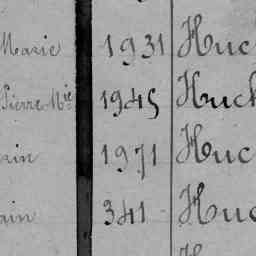 Marie 1931 Huc
Pierre Mie 1945 Huch
rin 1971 Huc
ain 341 Huc